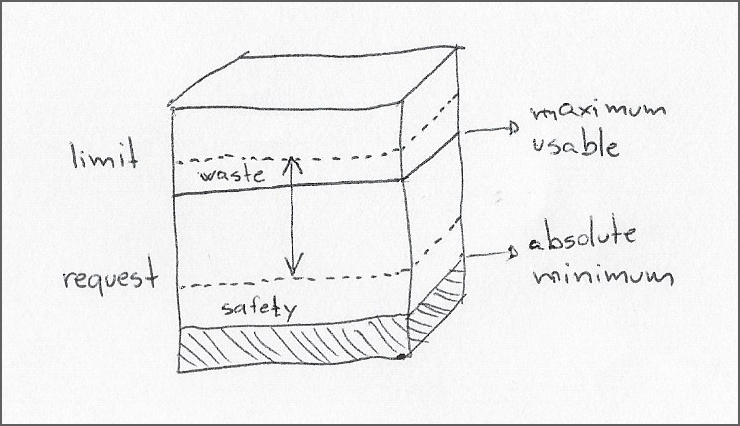 maximum
usable
limit
waste
absolute
minimum
request
safety